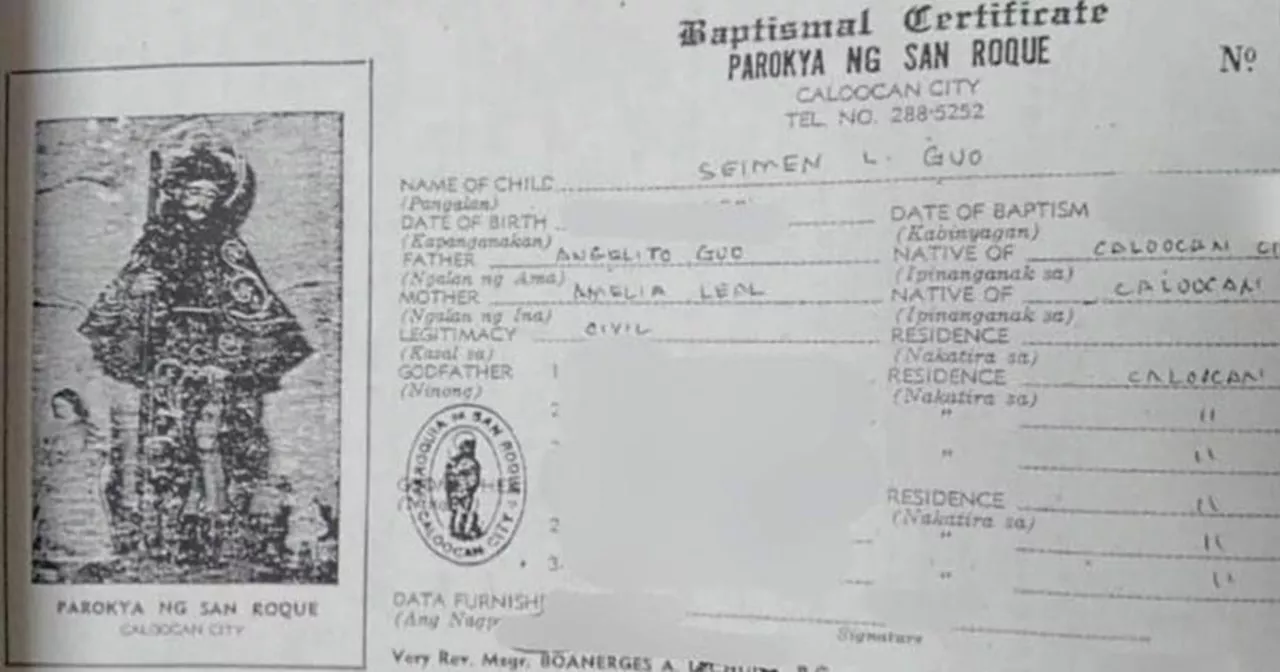 Baptismal Certificate
PAROKYA NG SAN ROQUE
Nº
CALOOCAN CITY
TEL. NO. 288-5252
NAME OF CHILD SEIMEN L. GUO
(Pangalan)
DATE OF BIRTH DATE OF BAPTISM
(Kapanganakan) (Kabinyagan)
FATHER ANGELITO GUO NATIVE OF CALOOCAN CI
(Ngalan ng Ama) (Ipinanganak sa)
MOTHER AMELIA LEAL NATIVE OF CALOOCAN
(Ngalan ng Ina) (Ipinanganak sa)
LEGITIMACY CIVIL RESIDENCE
(Kasal sa) (Nakatira sa)
GODFATHER 1 RESIDENCE CALOOCAN
(Ninong) (Nakatira sa)
2 " "
" "
RESIDENCE "
(Nakatira sa)
2 " "
3. " "
PAROQUIA DE SAN ROQUE
CALOOCAN CITY
DATA FURNISH
(Ang Nagp
Signature
Very Rev. Msgr. BOANERGES A.
PAROKYA NG SAN ROQUE
CALOOCAN CITY